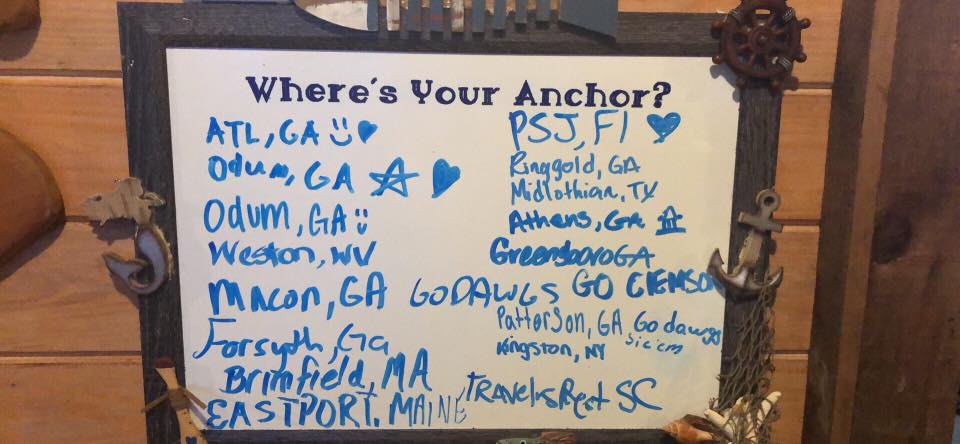 Where's Your Anchor?
ATL, GA
Odum, GA
Odum, GA
Weston, WV
Macon, GA GO DAWGS
Forsyth, Ga
Brimfield, MA
EASTPORT, MAINE
PSJ, Fl
Ringgold, GA
Midlothian, TX
Athens, GA
Greensboro GA
GO ClEMSON
Patterson, GA Go dawgs
Sic'em
Kingston, NY
TRAVElers Rest SC